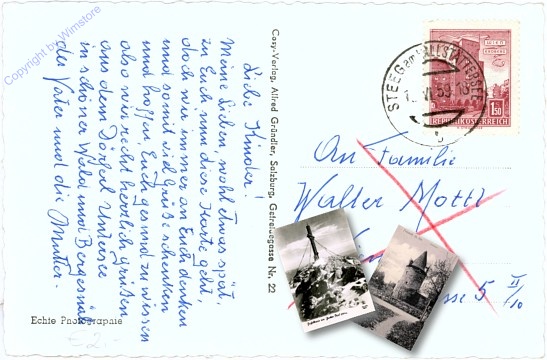 Copyright by Wimstore
Liebe Kinder!
Meine Lieben, wohl etwas spät,
zu Euch nun diese Karte geht,
doch wir immer an Euch denken
und somit viel Grüße schenken
und hoffen, Euch gesund zu wissen
also wir recht herzlich grüßen
aus dem Dörfel Untersee
in schöner Wald und Bergesnäh
der Vater und die Mutter.
Echte Photographie
Cosy-Verlag, Alfred Gründler, Salzburg, Getreidegasse Nr. 22
STEEG am HALLSTÄTTERSEE
VI 59
b
1.50
REPUBLIK ÖSTERREICH
An Familie
Walter Mottl
asse 5 II/10